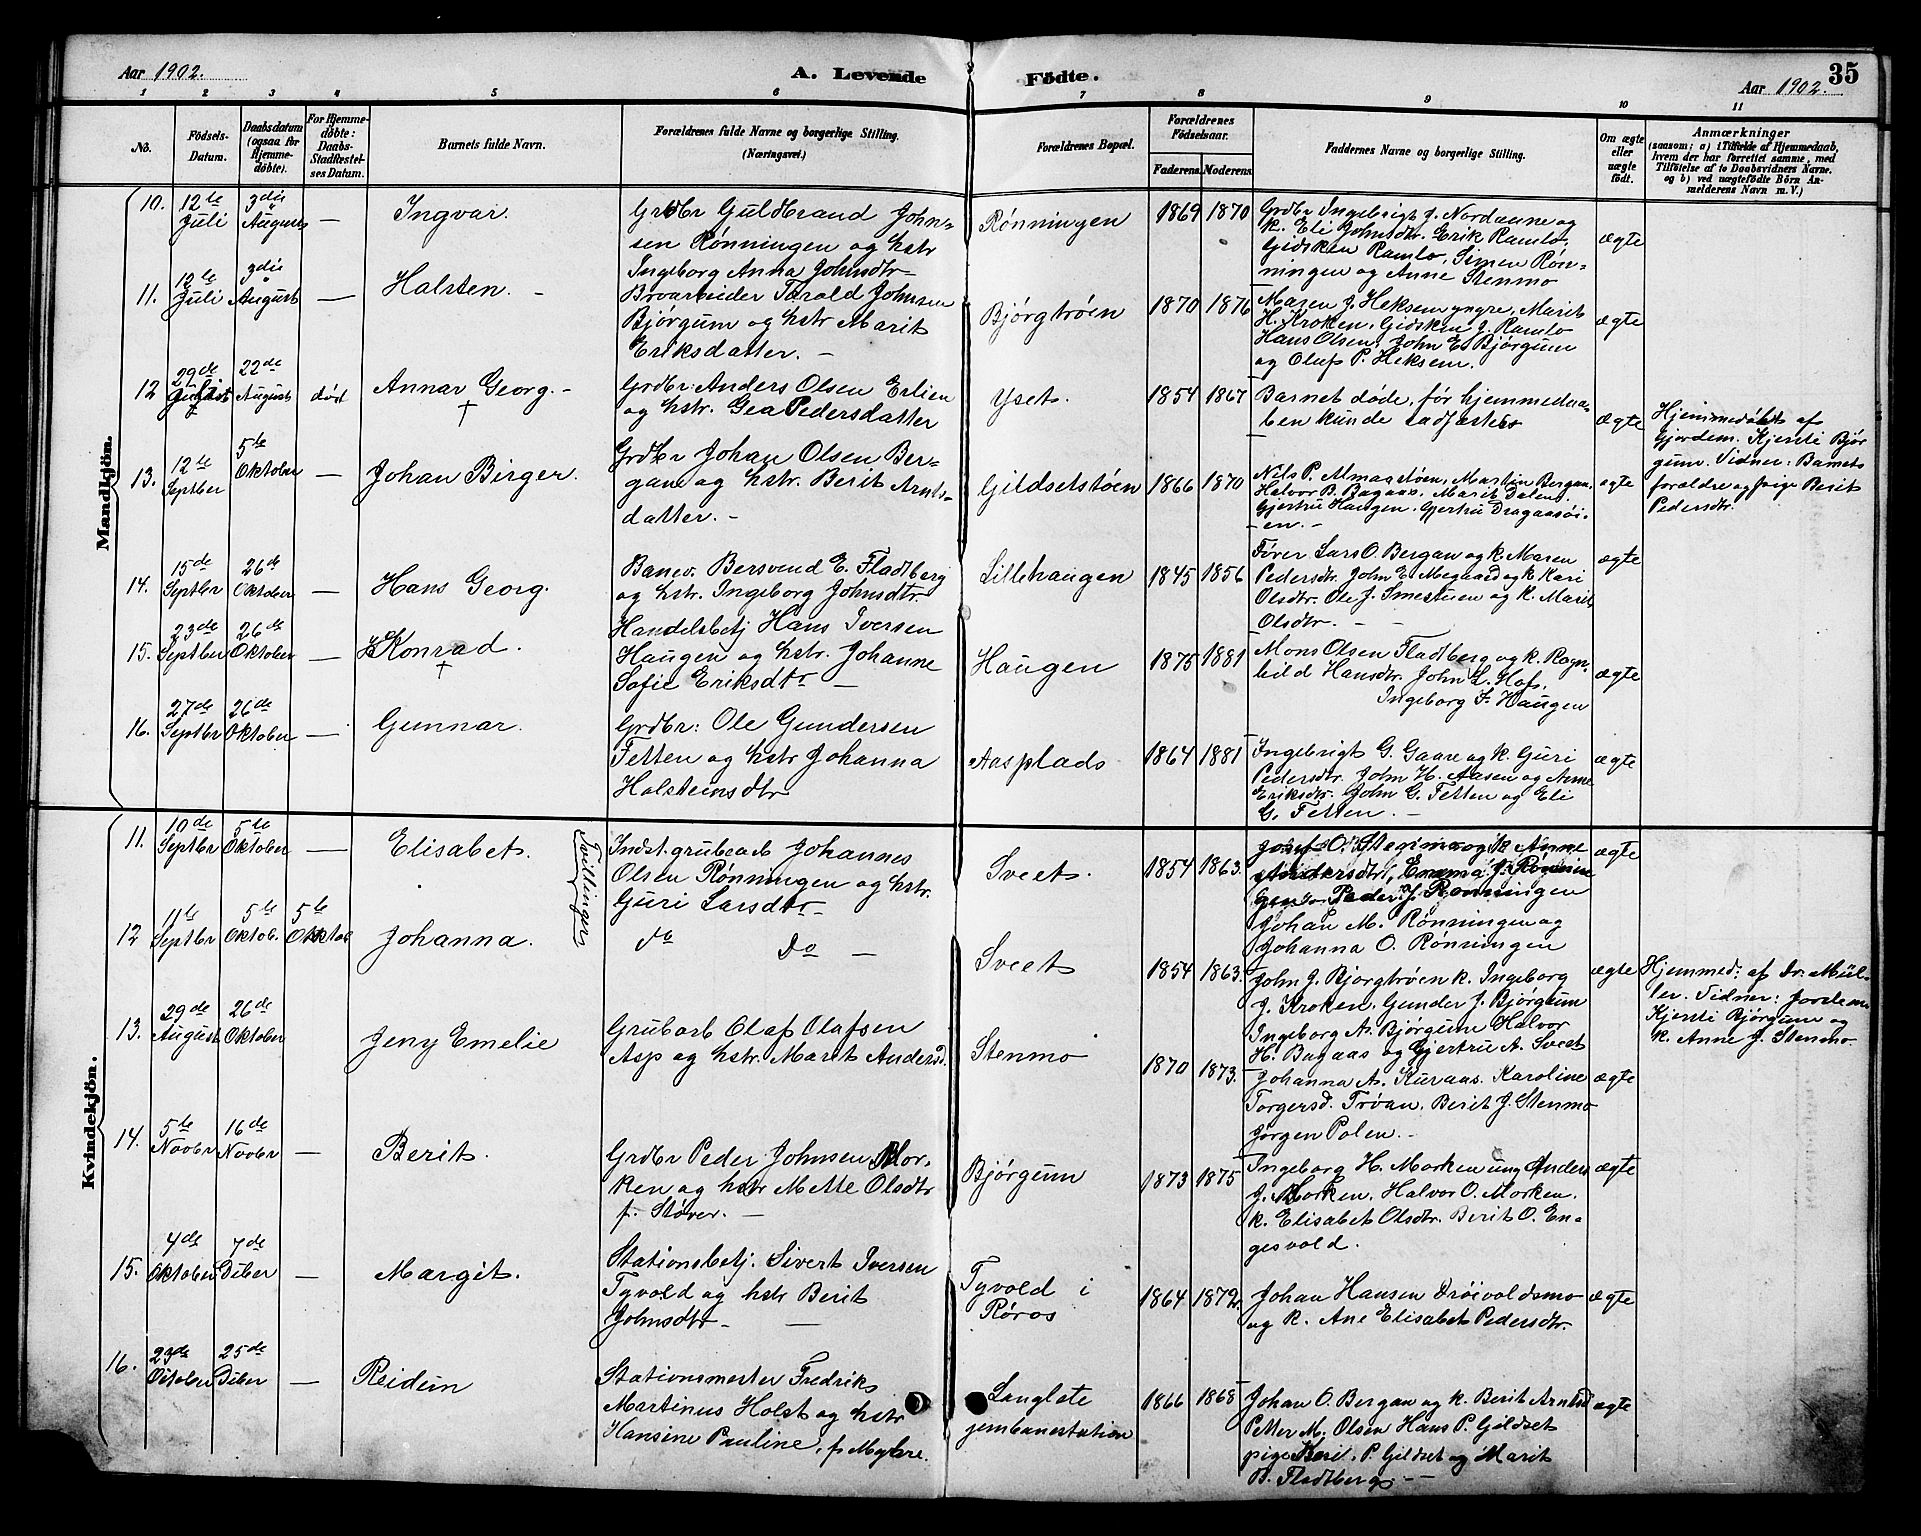 Aar 1902.
A. Levende Fødte.
Aar 1902.
35
1 2 3 4 5 6 7 8 9 10 11
No.
Födsels-
Datum.
Daabsdatum
(ogsaa for
Hjemme-
døbte).
For Hjemme-
døbte:
Daabs-
Stadfæstel-
ses Datum.
Barnets fulde Navn.
Forældrenes fulde Navne og borgerlige Stilling.
(Næringsvei.)
Forældrenes Bopæl.
Forældrenes
Födselsaar.
Faderens. Moderens.
Faddernes Navne og borgerlige Stilling.
Om ægte
eller
uægte
født.
Anmærkninger
(saasom: a) i Tilfælde af Hjemmedaab,
hvem der har forrettet samme, med
Tilføielse af to Daabsvidners Navne.
og b) ved uægtefødte Børn An-
melderens Navn m. V.)
Mandkjön.
10. 12te Juli
3die August
—
Ingvar.
Grdbr Guldbrand John-
sen Rønningen og hstr
Ingeborg Anna Johnsdtr
Rønningen
1869 1870
Grdbr Ingebrigt J. Nordaune og
k. Eli Johnsdtr. Erik Ramlo,
Gidsken Ramlo, Simen Røn-
ningen og Anne Stenmo
ægte
11. 12te Juli
3die August
—
Halsten. —
Tarald Johnsen
Bjørgum og hstr Marit
Eriksdatter. —
Bjørgtrøen
1870 1876
Masen J. Heksem yngre, Marit
H. Kroken, Gidsken J. Ramlo
Hans Olsen, John E. Bjørgum
og Oluf P. Heksem.
ægte
12 29de
22de August
død
Annar Georg. —
†
Grdbr: Anders Olsen Erlien
og hstr. Gea Pedersdatter
Yset.
1854 1867
Barnet døde, før hjemmedaa-
ben kunde stadfæstes
ægte
Hjemmedøbt af
Gjordem. Kjersti Bjør
gum. Vidner: Barnets
forældre og pige Berit
Pedersdtr.
13. 12te Septber
5te Oktober
—
Johan Birger.
Grdbr Johan Olsen Ber-
gan og hstr. Berit Arnts-
datter. —
Gildsetstøen
1866 1870
Nils P. Almaastøen, Martin Bergan,
Halvor B. Bagaas, Marit Dalen,
Gjertru Haugen, Gjertru Dragaasøi-
en. —
ægte
14. 15de Septbr
26de Oktober
—
Hans Georg.
Banev. Bersvend E. Fladberg
og hstr. Ingeborg Johnsdtr.
Lillehaugen
1845 1856
Fører Lars O. Bergan og k. Maren
Pedersdtr. John E. Megaard og k. Kari
Olsdtr. Ole J. Smestuen og k. Marit
Olsdtr. — —
ægte
15. 23de Septber
26de Oktober
—
Konrad.
†
Handelsbetj Hans Iversen
Haugen og hstr. Johanne
Sofie Eriksdtr —
Haugen
1875 1881
Mons Olsen Fladberg og k. Ragn-
hild Hansdtr. John L. Hof.
Ingeborg I. Haugen
ægte
16. 27de Septbr
26de Oktober
—
Gunnar.
Grdbr: Ole Gundersen
Fetten og hstr Johanna
Halsteinsdtr
Aasplads
1864 1881
Ingebrigt G. Gaare og k. Guri
Pedersdtr. John H. Aasen og Anne
Eriksdtr. John G. Fetten og Eli
G. Fetten. —
ægte
Kvindekjön.
11. 10de Septbr
5te Oktober
—
Elisabet.
Tvillinger
Indst. grubearb Johannes
Olsen Rønningen og hstr.
Guri Larsdtr
Sveet.
1854 1863.
Josef O. og k Anne
Emma J. Rønnin
gen Peder J. Rønningen
ægte
12 11te Septbr
5te Oktob.
5te Oktob
Johanna.
do do —
Sveet
1854 1863.
Johan M. Rønningen og
Johanna O. Rønningen
John J. Bjørgtrøen k. Ingeborg
J. Kroken, Gunder J. Bjørgum
ægte
Hjemmed: af Dr. Mül-
ler. Vidner: Jordem
Kjersti Bjørgum og
k. Anne J. Stenmo
13. 29de August
26de Oktober
Jeny Emelie
Grubarb Olaf Olafsen
Asp og hstr. Marit Andersd.
Stenmo
1870 1873.
Ingeborg A. Bjørgum Halvor
H. Bagaas og Gjertru A. Sveet
Johanna A. Kuraas. Karoline
Torgersd. Trøan, Berit J. Stenmo
Jørgen Polen. —
ægte
14. 5te Novbr
16de Novbr
—
Berit.
Grdbr Peder Johnsen Mor-
ken og hstr Mette Olsdtr
f. Støver. —
Bjørgum
1873 1875
Ingeborg H. Morken ung Anders
J. Morken, Halvor O. Morken.
k. Elisabet Olsdtr. Berit O. En-
gesvold.
ægte
15. 4de Oktober
7de Dcber
—
Margit.
Stationsbetj. Sivert Iversen
Tyvold og hstr Berit
Johnsdtr — —
Tyvold i
Røros
1864 1872
Johan Hansen Drøivoldsmo
og k. Ane Elisabet Pedersdtr.
ægte
16. 23de
25de Dcber
—
Reidun
Stationsmester Fredrik
Martinus Holst og hstr
Hansine Pauline, f. Myhre.
Langlete
jernbanestation
1866 1868
Johan O. Bergan og k. Berit Arntsd
Petter M. Olsen Hans P. Gildset
pige Berit. P. Gildset og Marit
B. Fladberg. —
ægte